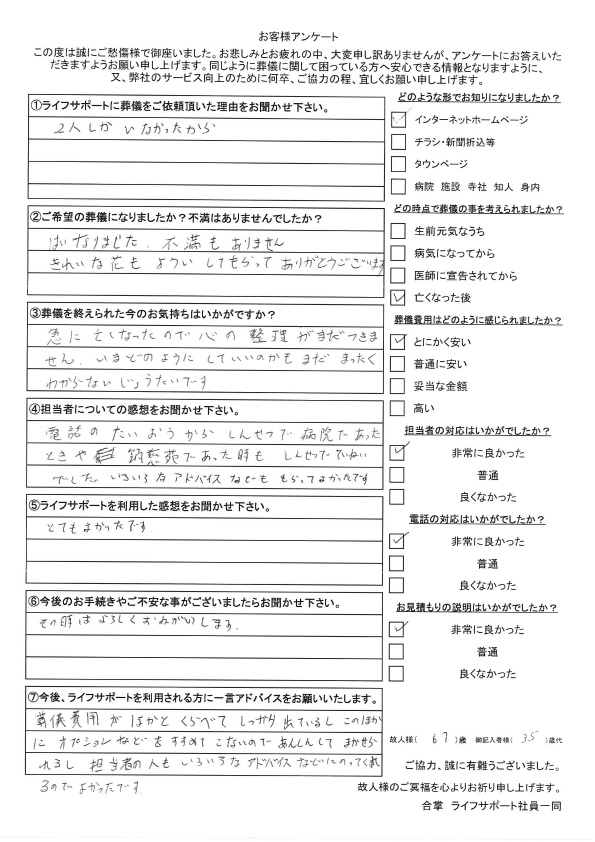 お客様アンケート
この度は誠にご愁傷様で御座いました。お悲しみとお疲れの中、大変申し訳ありませんが、アンケートにお答えいた
だきますようお願い申し上げます。同じように葬儀に関して困っている方へ安心できる情報となりますように、
又、弊社のサービス向上のために何卒、ご協力の程、宜しくお願い申し上げます。
①ライフサポートに葬儀をご依頼頂いた理由をお聞かせ下さい。
2人しか いなかったから
②ご希望の葬儀になりましたか？不満はありませんでしたか？
はいなりました、不満もありません
きれいな花も ようい してもらって ありがとうございます
③葬儀を終えられた今のお気持ちはいかがですか？
急に亡くなったので心の整理がまだつきま
せん、いまどのように していいのかも まだ まったく
わからない じょうたいです
④担当者についての感想をお聞かせ下さい。
電話の たいおうから しんせつで 病院であった
ときや 苑であった時も しんせつで ていねい
でした。いろいろな アドバイス なども もらって よかったです
⑤ライフサポートを利用した感想をお聞かせ下さい。
とてもよかったです。
⑥今後のお手続きやご不安な事がございましたらお聞かせ下さい。
その時はよろしくおねがいします。
⑦今後、ライフサポートを利用される方に一言アドバイスをお願いいたします。
葬儀費用が ほかと くらべて しっかり 出ているし このほか
に オプションなどを すすめて こないので あんしんして まかせら
れるし 担当者の人も いろいろな アドバイスなどに のってくれ
るので よかったです.
どのような形でお知りになりましたか？
インターネットホームページ
チラシ・新聞折込等
タウンページ
病院 施設 寺社 知人 身内
どの時点で葬儀の事を考えられましたか？
生前元気なうち
病気になってから
医師に宣告されてから
亡くなった後
葬儀費用はどのように感じられましたか？
とにかく安い
普通に安い
妥当な金額
高い
担当者の対応はいかがでしたか？
非常に良かった
普通
良くなかった
電話の対応はいかがでしたか？
非常に良かった
普通
良くなかった
お見積もりの説明はいかがでしたか？
非常に良かった
普通
良くなかった
故人様（ 67 ）歳 御記入者様（ 35 ）歳代
ご協力、誠に有難うございました。
故人様のご冥福を心よりお祈り申し上げます。
合掌 ライフサポート社員一同